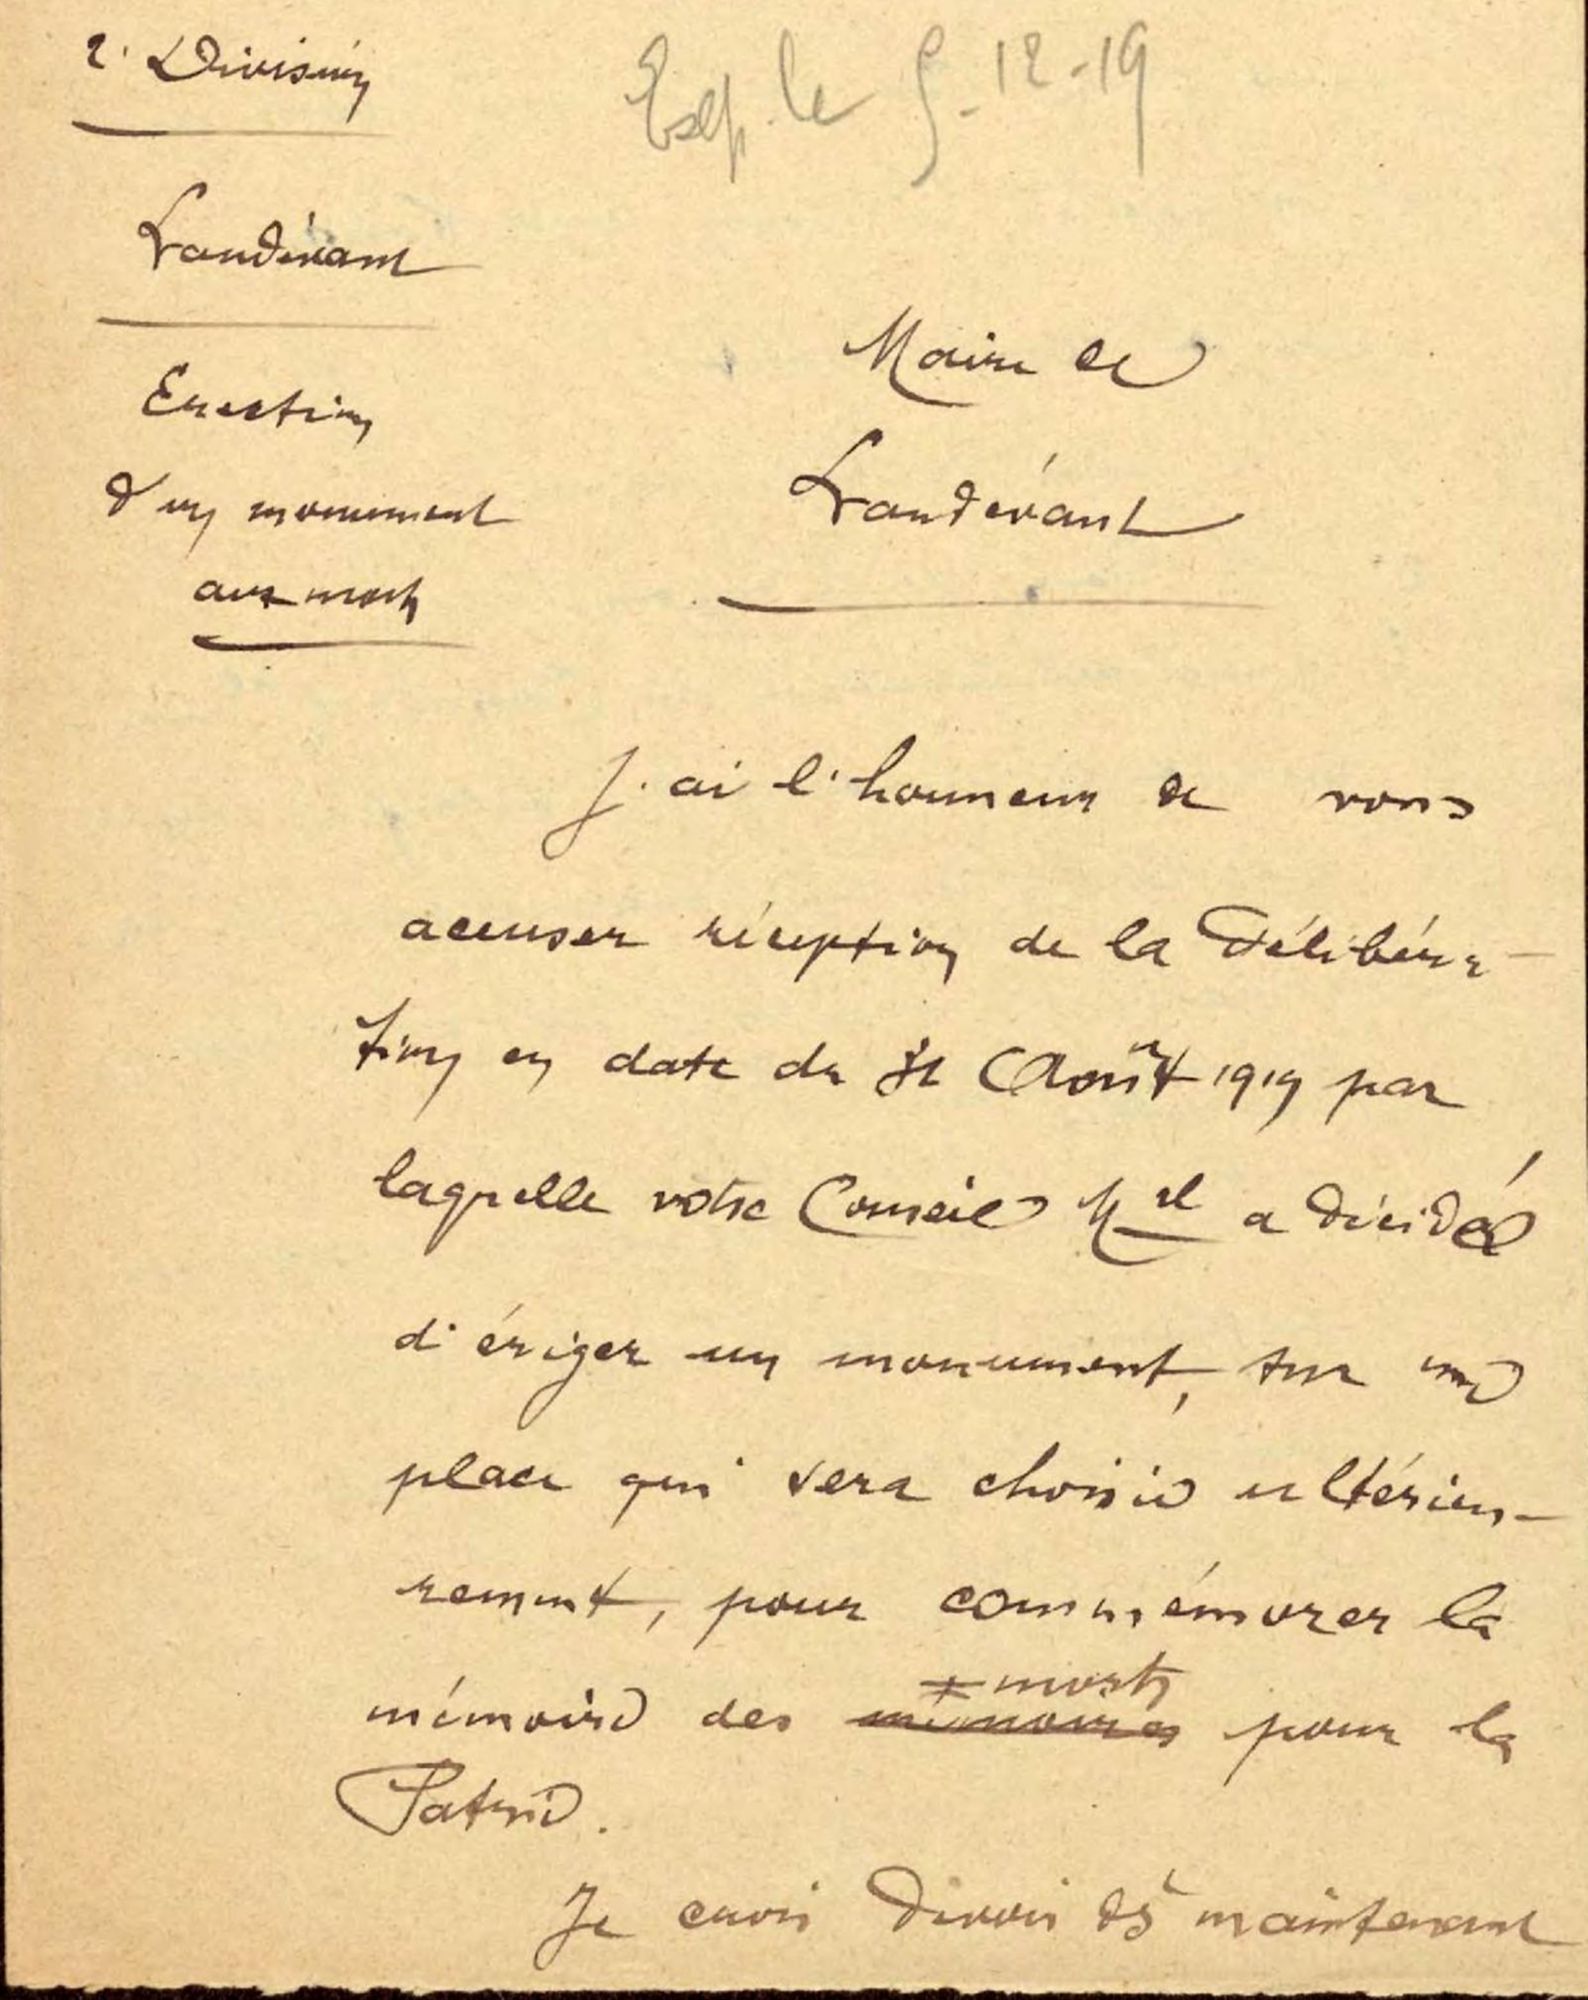 2e Division
Exp. le 5-12-19
Landévant
Erection
d'un monument
aux morts
Maire de
Landévant
J'ai l'honneur de vous
accuser réception de la Délibéra-
tion en date du 31 Août 1919 par
laquelle votre Conseil Mal a décidé
d'ériger un monument, sur une
place qui sera choisie ultérieu-
rement, pour commémorer la
morts
mémoire des mémoires pour la
Patrie.
Je crois devoir dès maintenant